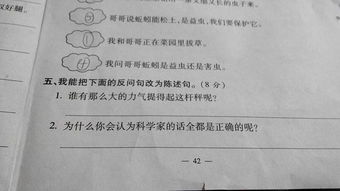 ⑤ 哥哥说蚯蚓能松土,是益虫,我们要保护它。
① 我和哥哥正在菜园里拔草。
④ 我问哥哥蚯蚓是益虫还是害虫。
五、我能把下面的反问句改为陈述句。(8 分)
1. 谁有那么大的力气提得起这杆秤呢?
2. 为什么你会认为科学家的话全都是正确的呢?
— 42 —